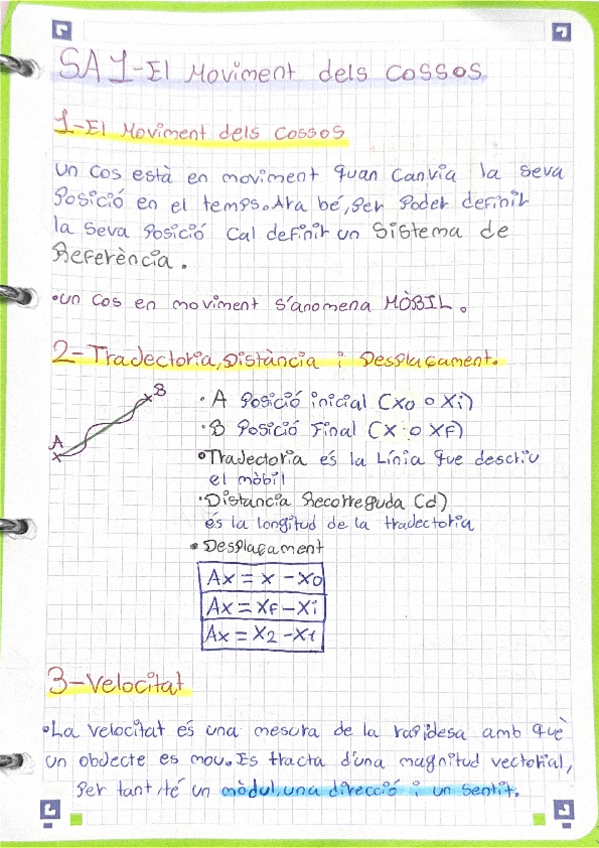 SA 1-El Moviment dels cossos.
1-El Moviment dels Cossos
un Cos està en moviment quan Canvia la seva
Posició en el temps. Ara bé, per Poder definir
la Seva Posició Cal definir un Sistema de
Referència.
•un Cos en moviment s'anomena MÒBIL.
2-Tradectoria, Distància i Desplaçament.
B
A
• A Posició inicial (Xo o Xi)
• B Posició Final (X o XF)
•Tradectoria és la Línia que descriu
el mòbil
•Distancia Recorreguda (d)
és la longitud de la tradectoria
• Desplaçament
Ax = x - Xo
Ax = XF - Xi
Ax = X2 - X1
3-Velocitat
•La Velocitat és una mesura de la rapidesa amb què
un obdecte es mou. Es tracta d'una magnitud vectorial,
Per tant, té un mòdul, una direcció i un sentit.